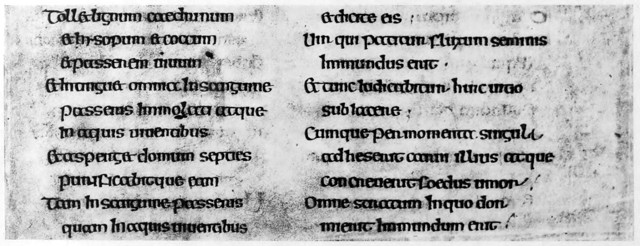 Tollet lignum caedrinum
et hysopum et coccum
et passerem uiuum
et intinguet omnia in sanguine
passeris immolati atque
in aquis uiuentibus
et asperget domum septies
purificabitque eam
Tam in sanguine passeris
quam in aquis uiuentibus
et dicite eis ;
Uir qui patitur fluxum seminis
immundus erit ·
Et tunc iudicabitur huic uitio
subiacere ;
Cumque per momenta singula
adheserit carni illius atque
concreuerit foedus umor
Omne stratum in quo dor
mierit inmundum erit ·